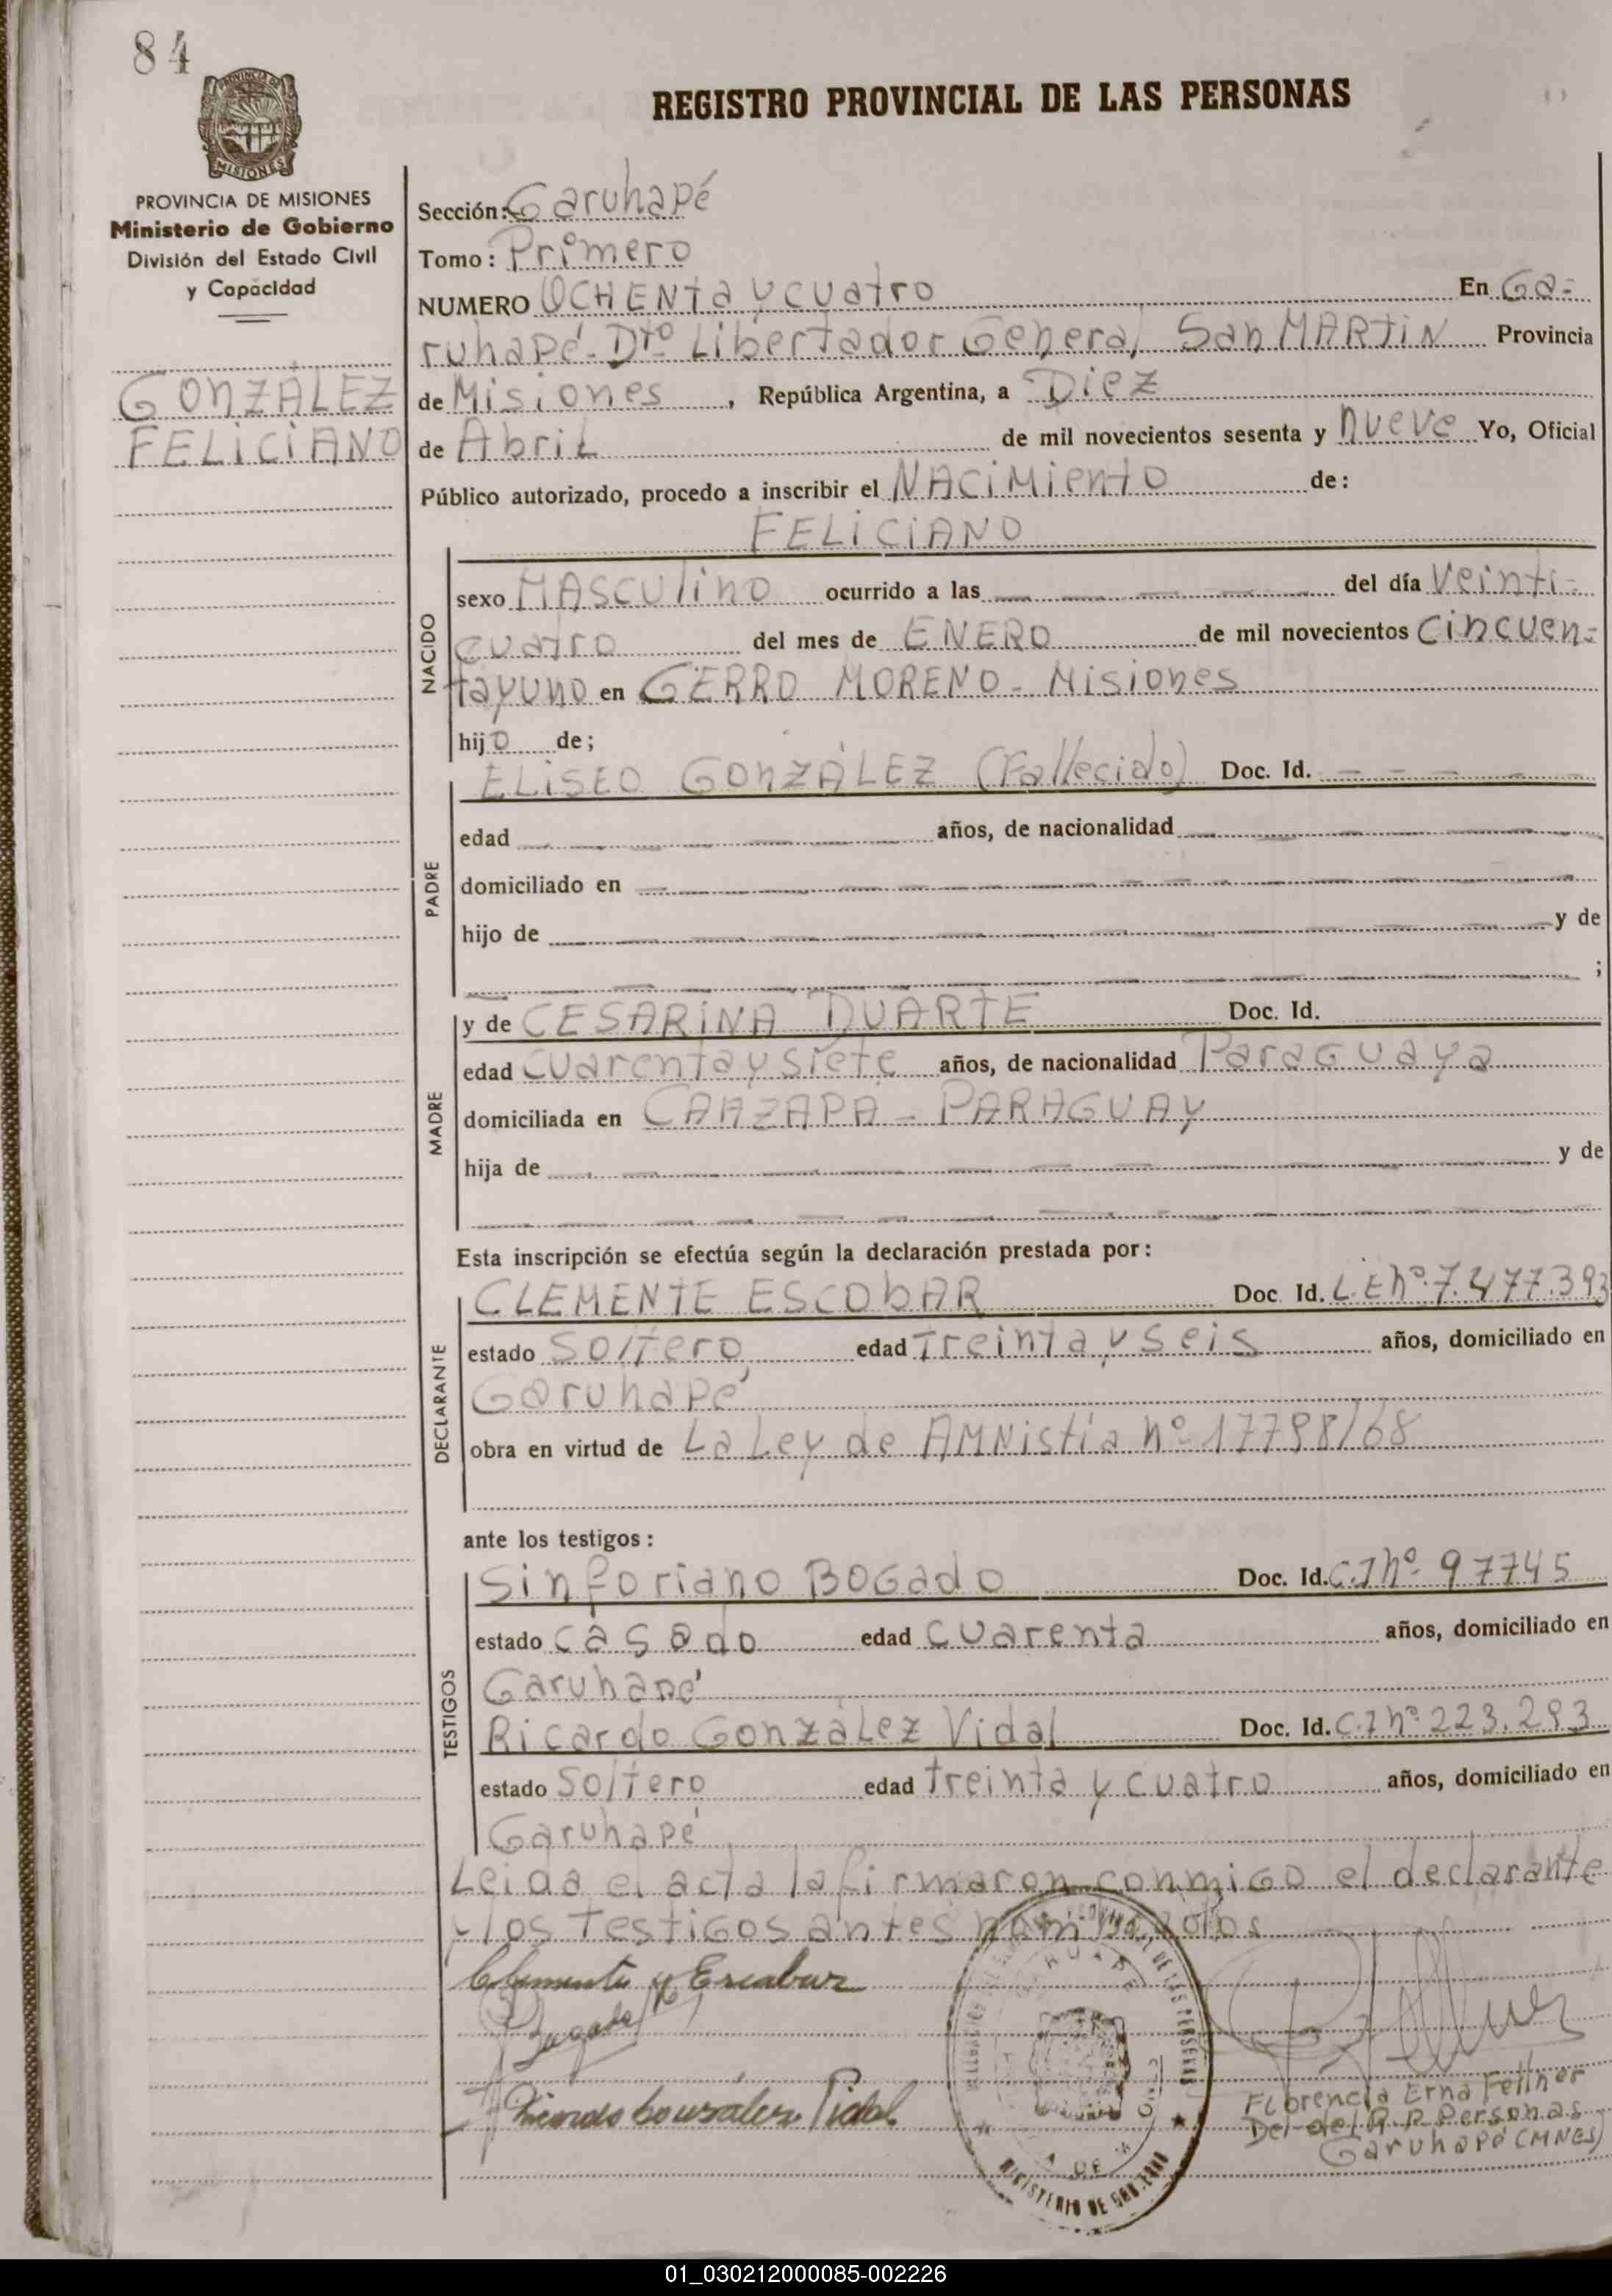 84
PROVINCIA DE MISIONES
REGISTRO PROVINCIAL DE LAS PERSONAS
PROVINCIA DE MISIONES
Ministerio de Gobierno
División del Estado Civil
y Capacidad
GONZÁLEZ
FELICIANO
Sección: Garuhapé
Tomo: Primero
NUMERO OCHENTA y cuatro En Ga-
ruhapé-Dtº Libertador General San MARTIN Provincia
de Misiones, República Argentina, a Diez
de Abril de mil novecientos sesenta y nueve Yo, Oficial
Público autorizado, procedo a inscribir el NACIMIENTO de:
FELICIANO
NACIDO
sexo MASCULINO ocurrido a las — — — — del día Veinti-
cuatro del mes de ENERO de mil novecientos Cincuen-
tayuno en CERRO MORENO - Misiones
hijo de;
PADRE
ELISEO GONZÁLEZ (Fallecido) Doc. Id. — — — — —
edad — — — — años, de nacionalidad — — — — —
domiciliado en — — — — — — — —
hijo de — — — — — — — — y de
— — — — — — — — ;
MADRE
y de CESARINA DUARTE Doc. Id.
edad cuarenta y siete años, de nacionalidad Paraguaya
domiciliada en CAAZAPA - PARAGUAY
hija de — — — — — — — — y de
— — — — — — — —
Esta inscripción se efectúa según la declaración prestada por:
DECLARANTE
CLEMENTE ESCObAR Doc. Id. L.E nº 7.477.393
estado Soltero edad Treinta y seis años, domiciliado en
Garuhapé
obra en virtud de La Ley de AMNistía nº 17798/68
ante los testigos:
TESTIGOS
Sinforiano BOGado Doc. Id. C.I nº 97745
estado casado edad cuarenta años, domiciliado en
Garuhapé
Ricardo González Vidal Doc. Id. C.I nº 223.293
estado Soltero edad treinta y cuatro años, domiciliado en
Garuhapé
Leida el acta la firmaron conmigo el declarante
y los Testigos antes nombrados
Clemente y Escabar
Bugado
Ricardo Gonzalez Vidal
MINISTERIO DE GOBIERNO
Florencia Erna Fellner
Del. del R.P. Personas
Garuhapé (MNES)
01_030212000085-002226